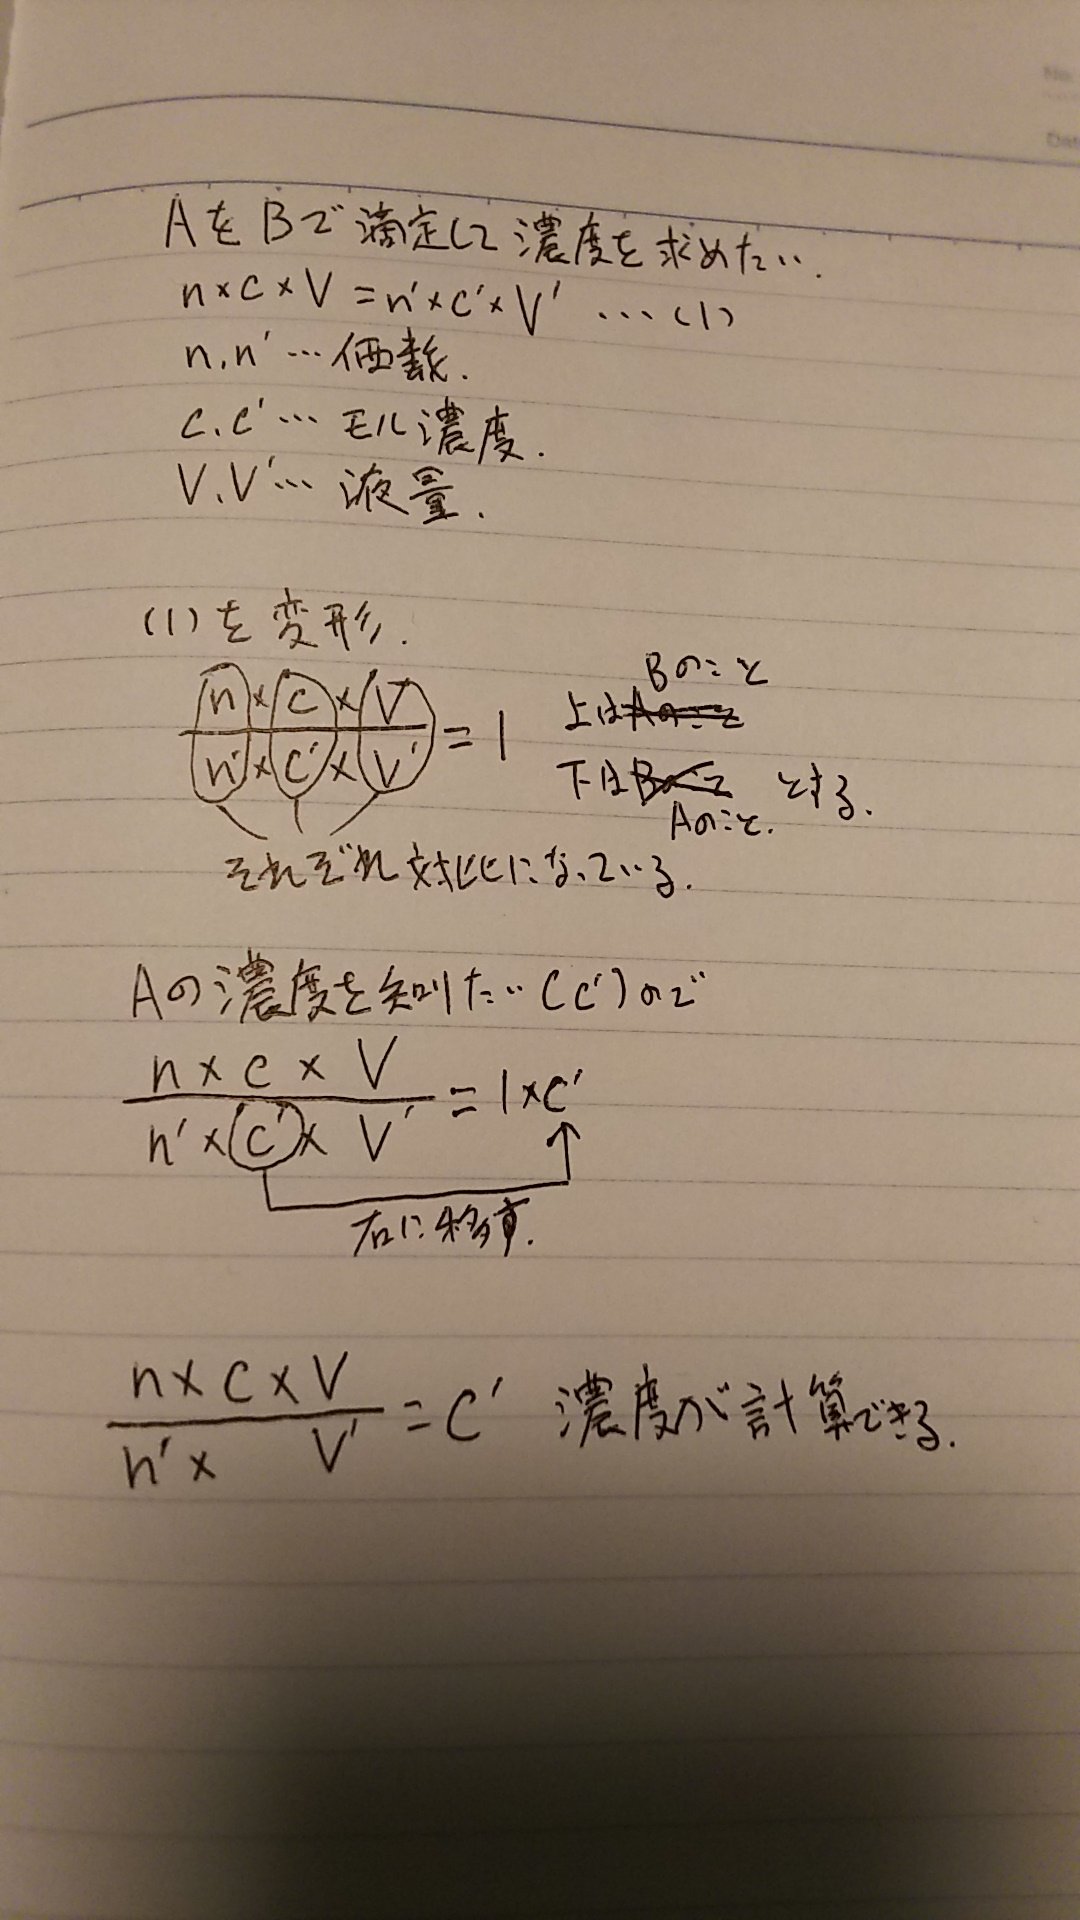 AをBで滴定して濃度を求めたい.
n×c×V=n'×c'×V' …(1)
n.n'…価数.
c.c'…モル濃度.
V.V'…液量.
(1)を変形.
n×c×V
Bのこと
上はAのこと
n'×c'×V' = 1
下はBのこと とする.
Aのこと.
それぞれ対比になっている.
Aの濃度を知りたい(c')ので
n×c×V
n'×c'×V' = 1×c'
右に移す.
n×c×V
n'× V' = c' 濃度が計算できる.